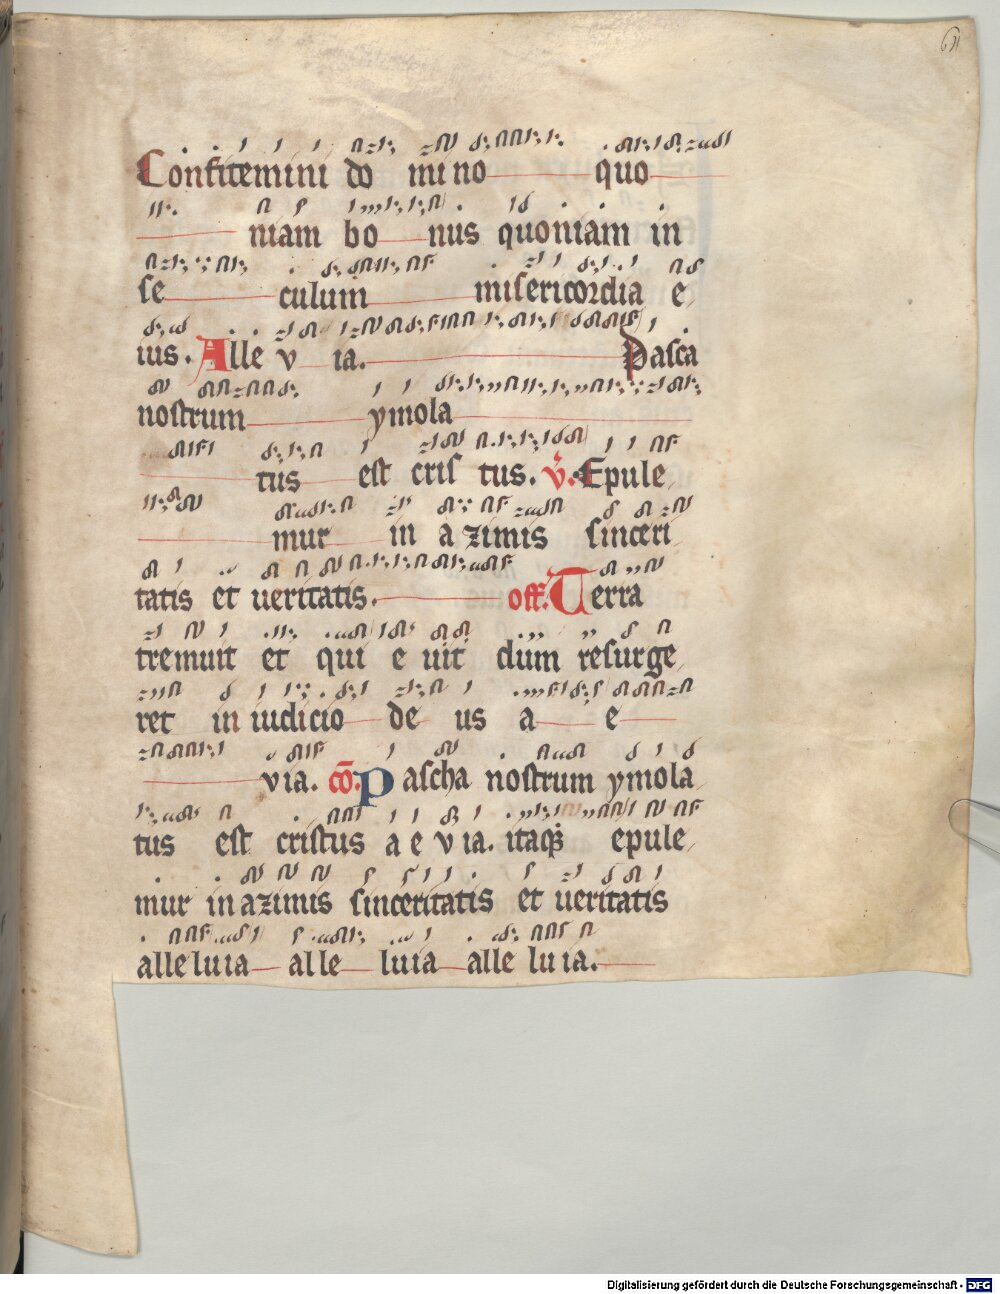 61
Confitemini do mi no quo
niam bo nus quoniam in
se culum misericordia e
ius. Alle v ia. Pasca
nostrum ymola
tus est cris tus. v. Epule
mur in a zimis sinceri
tatis et ueritatis. off. Terra
tremuit et qui e uit dum resurge
ret in iudicio de us a e
via. cō. Pascha nostrum ymola
tus est cristus a e v ia. itaq epule
mur in azimis sinceritatis et ueritatis
alleluia alle luia alle lu ia.
Digitalisierung gefördert durch die Deutsche Forschungsgemeinschaft - DFG